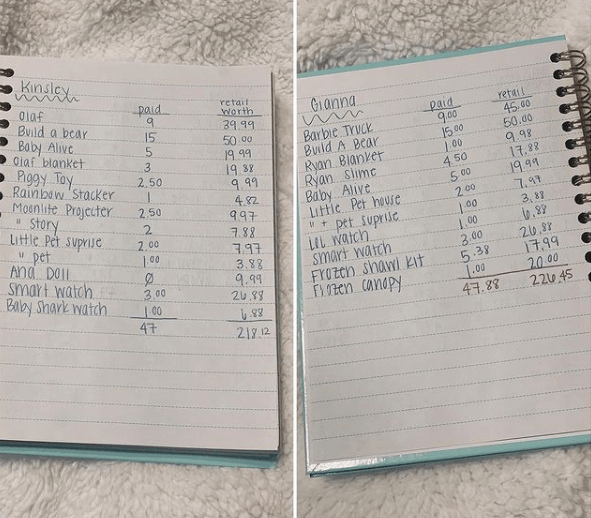 Kinsley
paid retail worth
Olaf 9 39.99
Build a bear 15 50.00
Baby Alive 5 19.99
Olaf blanket 3 19.88
Piggy Toy 2.50 9.99
Rainbow Stacker 1 4.82
Moonlite Projecter 2.50 9.97
" story 2 7.88
Little Pet suprise 2.00 7.97
" pet 1.00 3.88
Ana Doll Ø 9.99
Smart watch 3.00 26.88
Baby Shark watch 1.00 6.88
47 218.12
Gianna
paid retail
Barbie Truck 9.00 45.00
Build A Bear 15.00 50.00
Ryan Blanket 1.00 9.98
Ryan Slime 4.50 17.88
Baby Alive 5.00 19.99
Little Pet house 2.00 7.97
" + pet suprise 1.00 3.88
Lol watch 1.00 6.88
smart watch 3.00 26.88
Frozen shawl kit 5.38 17.99
Frozen canopy 1.00 20.00
47.88 226.45